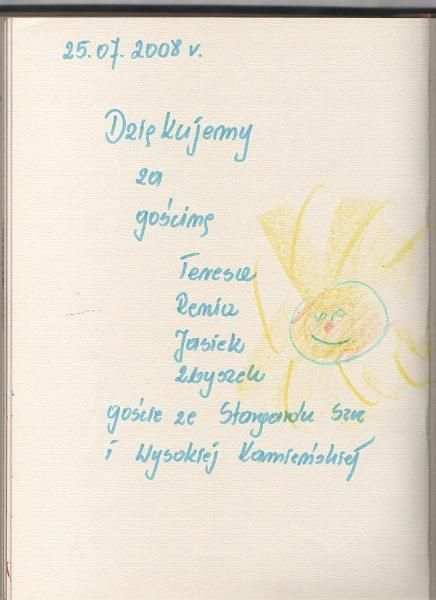 25.07.2008 r.
Dziękujemy
za
gościnę
Teresa
Renia
Jasiek
Zbyszek
goście ze Stargardu Szcz
i Wysokiej Kamieńskiej